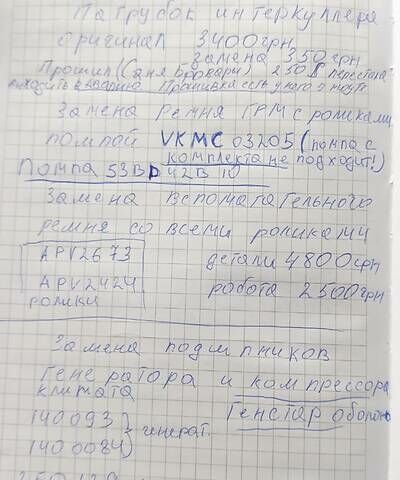 Патрубок интеркуллера
оригинал 3400грн
замена 350грн
Прошил (Саня Бровары) 250$ перестала
выходить в аварию Прошивка есть у него
Замена ремня ГРМ с роликами
помпой VKMC 03205 (помпа с
комплекта не подходит!)
Помпа 538D 42В 10
Замена вспомагательного
ремня со всеми роликами
APV2673
детали 4800грн
APV2424
ролики
робота 2500грн
Замена подшипников
Генератора и компрессора
климата
Генстар оболонь
140093
генерат.
140084